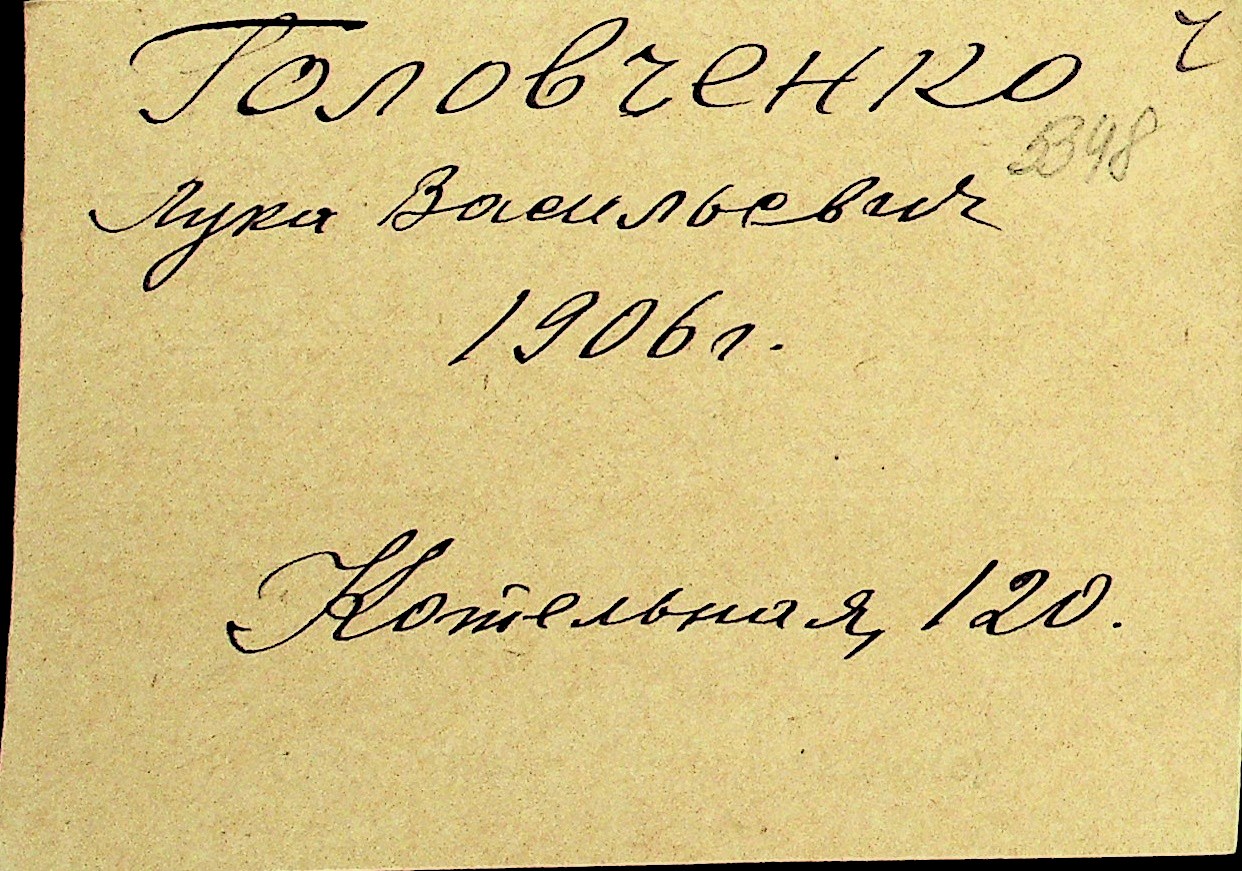 Головченко
5348
Лука Васильевич
1906г.
Котельная, 120.